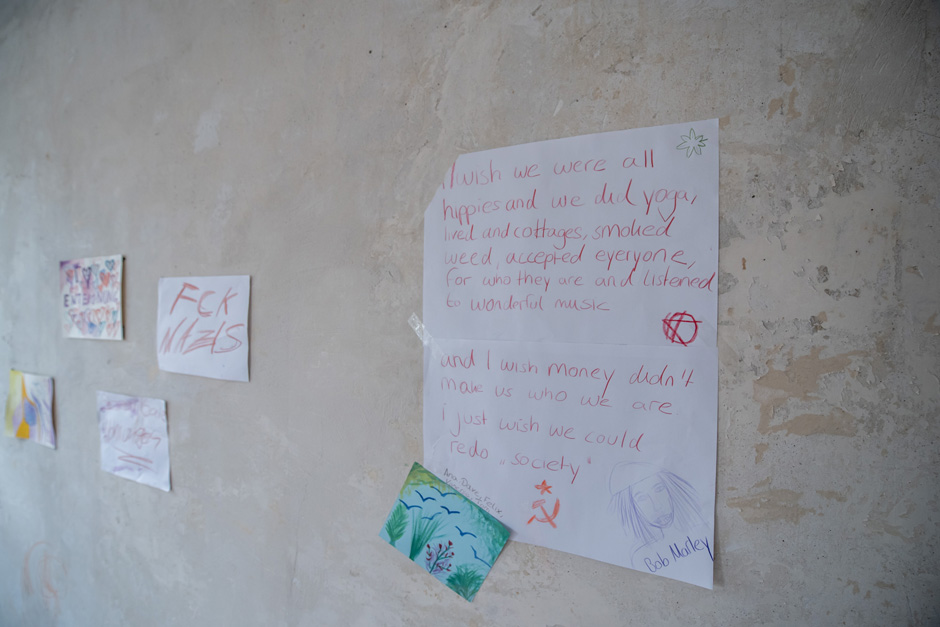 I wish we were all
hippies and we did yoga,
lived and cottages, smoked
weed, accepted everyone,
for who they are and listened
to wonderful music
and I wish money didn't
make us who we are
i just wish we could
redo „society“
Bob Marley
FCK
NAZIS